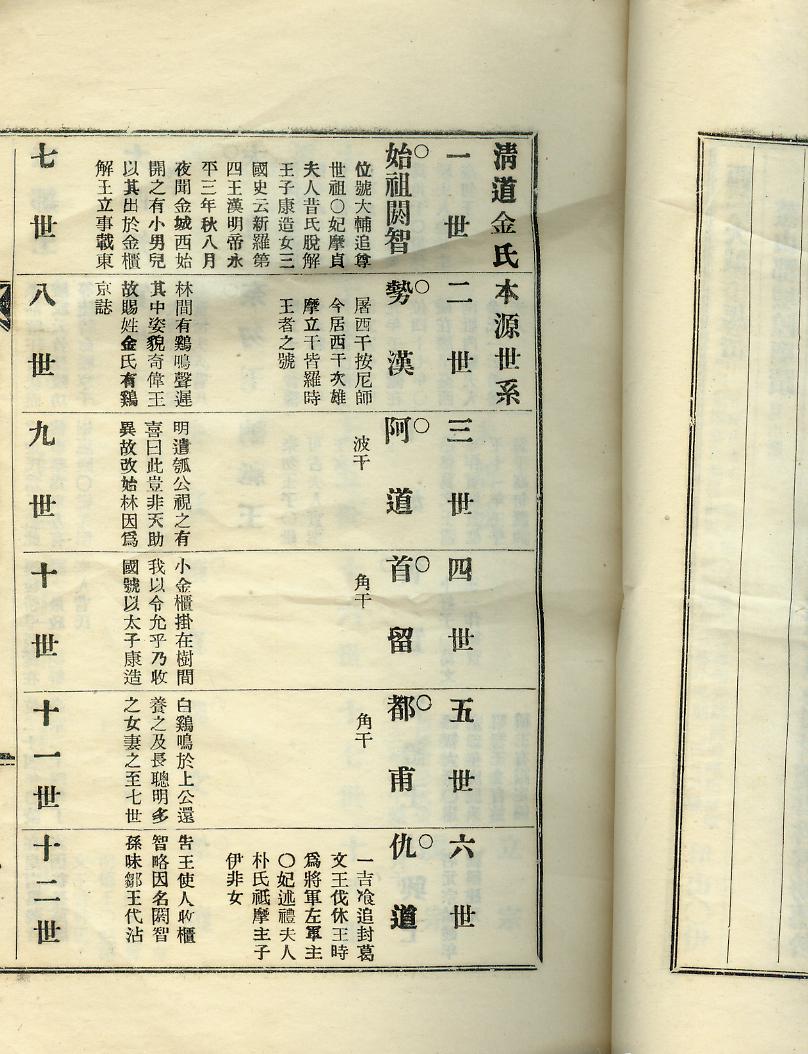 清道金氏本源世系
一世 二世 三世 四世 五世 六世
○始祖閼智 ○勢漢 ○阿道 ○首留 ○都甫 ○仇道
位號大輔追尊 屠西干按尼師 波干 角干 角干 一吉飡追封葛
世祖○妃摩貞 今居西干次雄 文王伐休王時
夫人昔氏脫解 摩立干皆羅時 爲將軍左軍主
王子康造女三 王者之號 ○妃述禮夫人
國史云新羅第 朴氏祇摩主子
四王漢明帝永 伊非女
平三年秋八月
夜聞金城西始林間有鷄鳴聲遲明遣瓠公視之有小金櫃掛在樹間白鷄鳴於上公還告王使人收櫃
開之有小男兒其中姿貌奇偉王喜曰此豈非天助我以令允乎乃收養之及長聰明多智略因名閼智
以其出於金櫃故賜姓金氏有鷄異故改始林因爲國號以太子康造之女妻之至七世孫味鄒王代沾
解王立事載東京誌
七世 八世 九世 十世 十一世 十二世